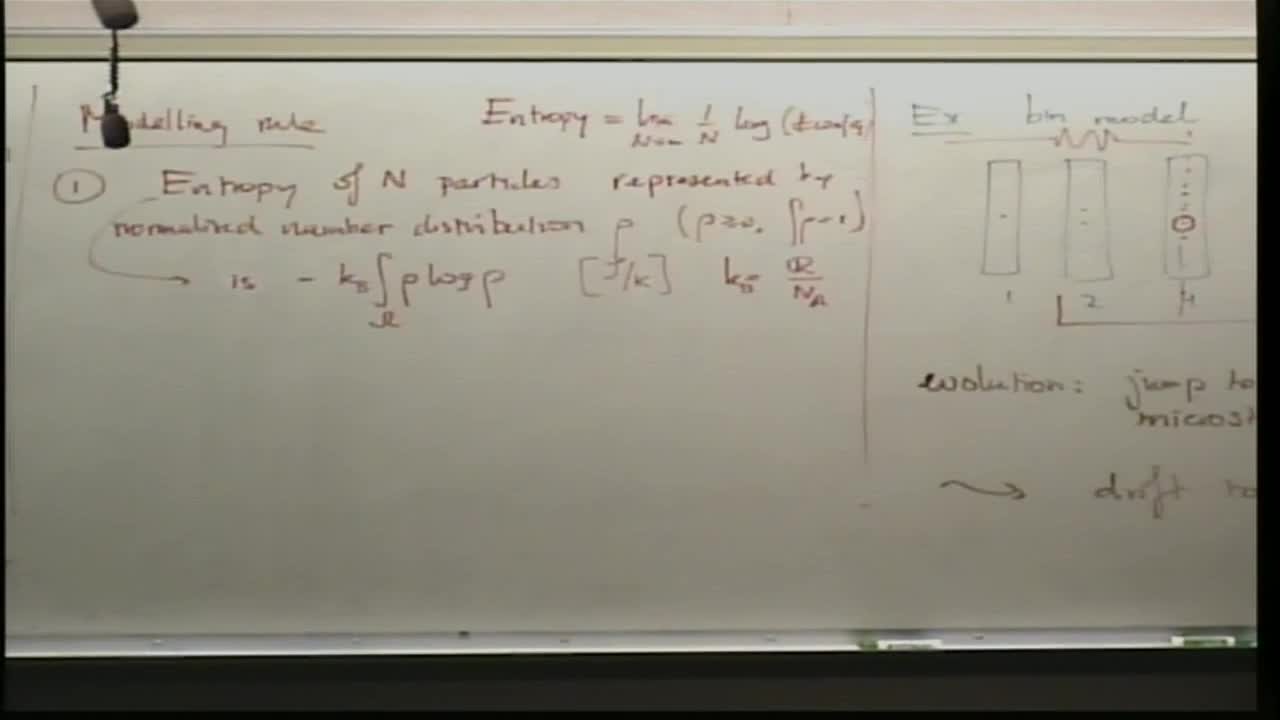 Modelling rule
Entropy = lim N→∞ 1/N log (
① Entropy of N particles represented by
normalized number distribution ρ (ρ≥0, ∫ρ=1)
is - k_B ∫_Ω ρ log ρ [J/K] k_B = R/N_A
Ex bin model
1 2 4
evolution: jump to
micros
drift to